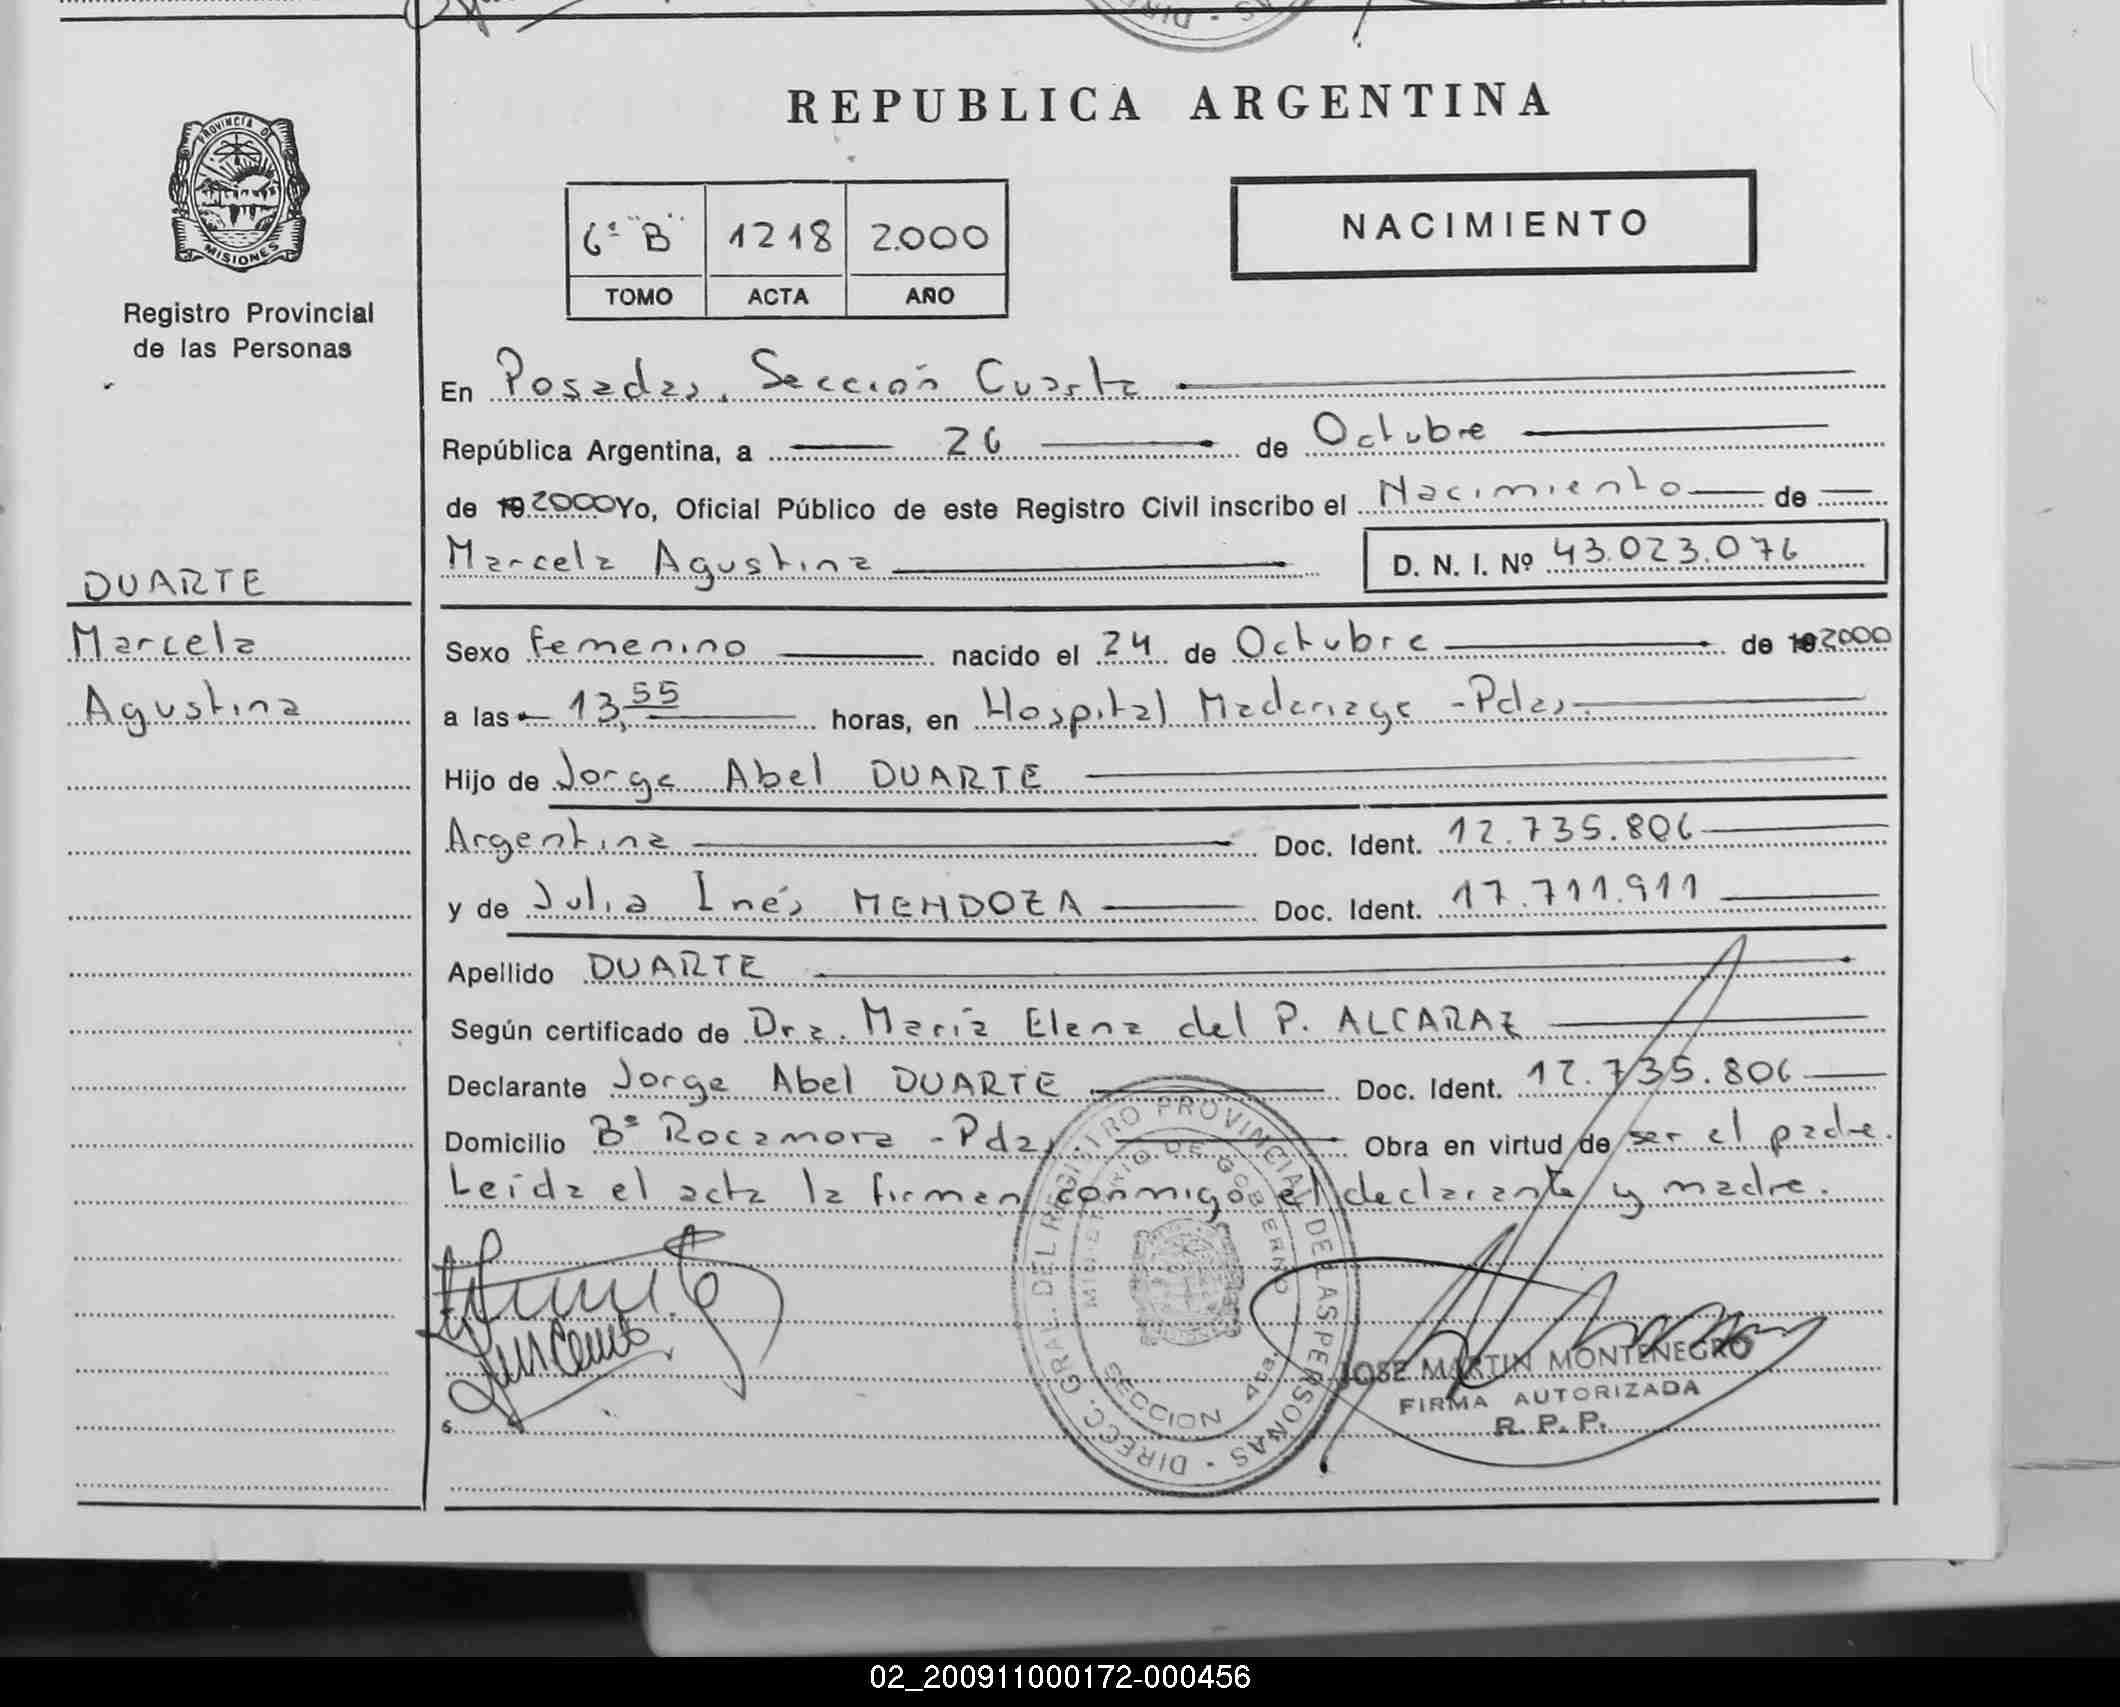 REPUBLICA ARGENTINA
PROVINCIA DE
MISIONES
Registro Provincial
de las Personas
6º "B" 1218 2.000
TOMO ACTA AÑO
NACIMIENTO
En Posadas, Sección Cuarta
República Argentina, a 26 de Octubre
de 19 2000 Yo, Oficial Público de este Registro Civil inscribo el Nacimiento de
Marcela Agustina D. N. I. Nº 43.023.076
DUARTE
Marcela
Agustina
Sexo Femenino nacido el 24 de Octubre de 19 2000
a las 13,55 horas, en Hospital Madariaga - Pdas.
Hijo de Jorge Abel DUARTE
Argentina Doc. Ident. 12.735.806
y de Julia Inés MENDOZA Doc. Ident. 17.711.911
Apellido DUARTE
Según certificado de Dra. María Elena del P. ALCARAZ
Declarante Jorge Abel DUARTE Doc. Ident. 12.735.806
Domicilio Bº Rocamora - Pdas Obra en virtud de ser el padre.
Leída el acta la firman conmigo el declarante y madre.
DIREC. GRAL. DEL REGISTRO PROVINCIAL DE LAS PERSONAS
MINISTERIO DE GOBIERNO
SECCION 4ta.
JOSE MARTIN MONTENEGRO
FIRMA AUTORIZADA
R. P. P.
02_200911000172-000456